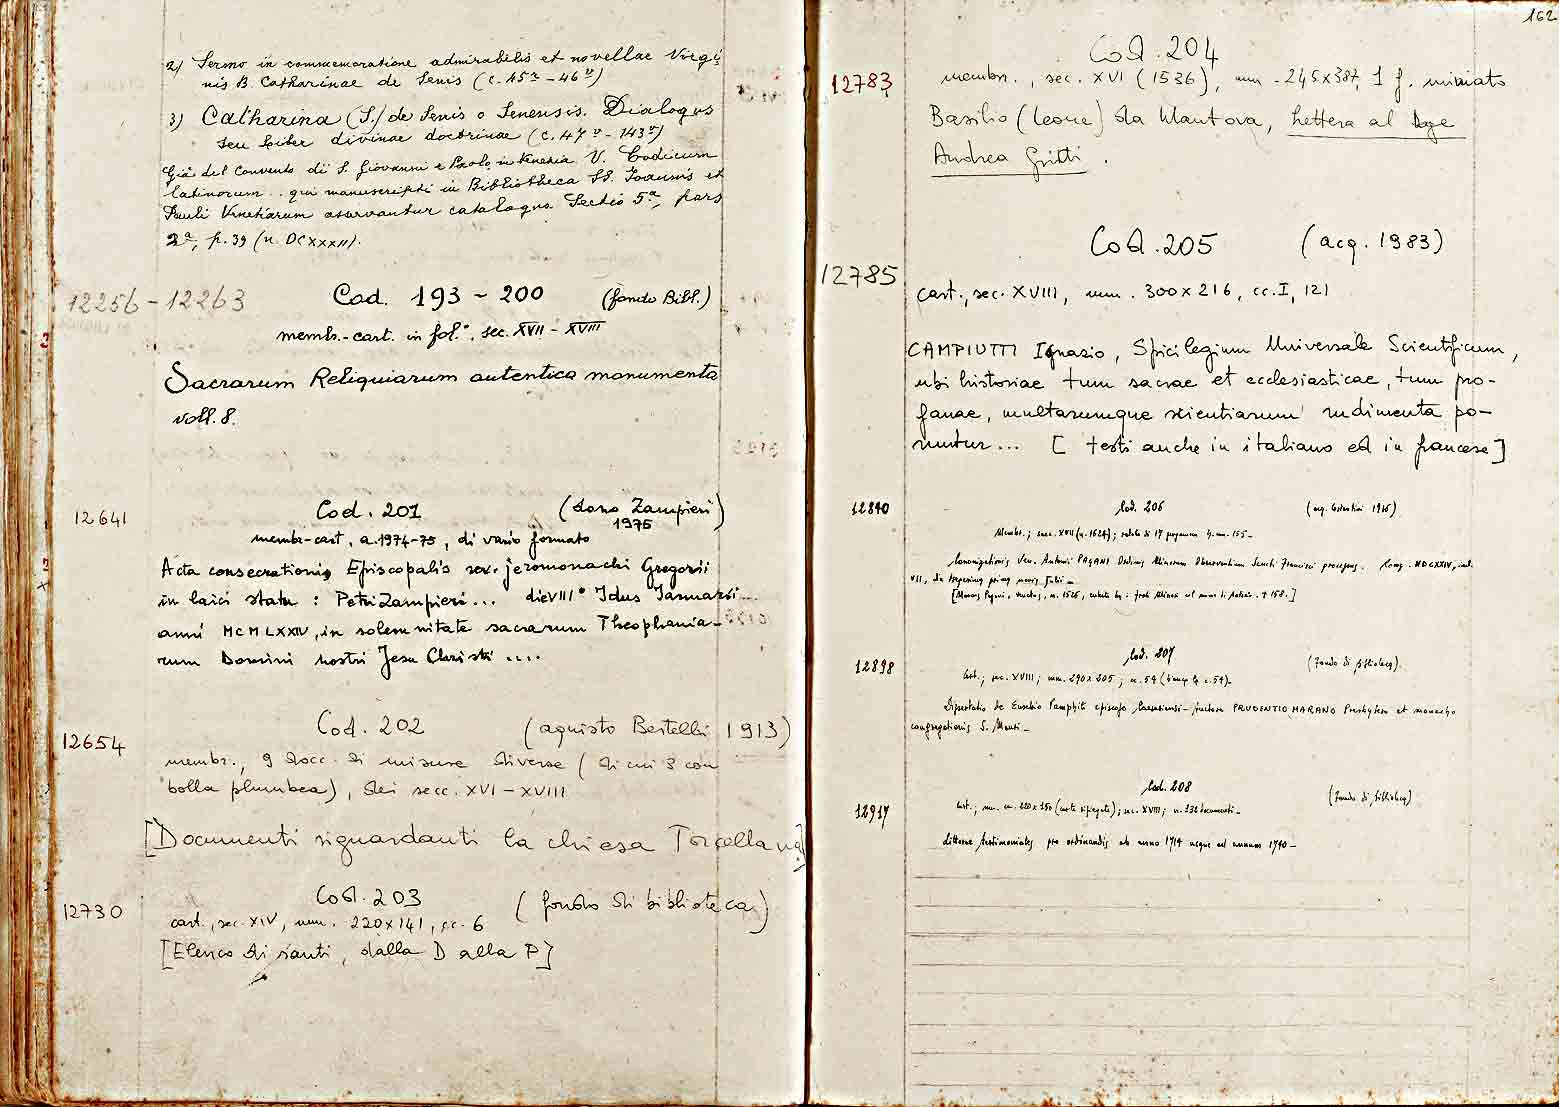 2) Sermo in commemoratione admirabilis et novellae Virgi
nis B. Catharinae de Senis (c. 45r – 46v)
3) Catharina (S.) de Senis o Senensis. Dialogus
seu liber divinae doctrinae (c. 47r – 143v)
Già del Convento di S. Giovanni e Paolo in Venezia. V. Codicum
latinorum.. qui manuscripti in Bibliotheca SS. Joannis et
Pauli Venetiarum asservantur catalogus. Sectio 5ª, pars
2ª, p. 39 (n. DCXXXII).
12256 – 12263 Cod. 193 – 200 (fondo Bibl.)
membr.-cart. in fol.°, sec. XVII – XVIII
Sacrarum Reliquiarum autentica monumenta
voll. 8.
12641 Cod. 201 (dono Zampieri)
1975
membr-cart, a. 1974-75, di vario formato
Acta consecrationis Episcopalis rev. jeromonachi Gregorii
in laici statu : Petri Zampieri ... die VIII° Idus Januarii ...
anni MCMLXXIV, in solemnitate sacrarum Theophania-
rum Domini nostri Jesu Christi ....
12654 Cod. 202 (aquisto Bertelli 1913)
membr., 9 docc. di misure diverse (di cui 3 con
bolla plumbea), dei secc. XVI – XVIII
[Documenti riguardanti la chiesa Torcellana]
12730 Cod. 203 (fondo di biblioteca)
cart., sec. XIV, mm. 220x141, cc. 6
[Elenco di santi, dalla D alla P]
162
Cod. 204
12783 membr., sec. XVI (1536), mm. 245x387, 1 f. miniato
Basilio (Leone) da Mantova, Lettera al Doge
Andrea Gritti.
Cod. 205 (acq. 1983)
12785
cart., sec. XVIII, mm. 300x216, cc. I, 121
CAMPIUTTI Ignazio, Spicilegium Universale Scientificum,
ubi historiae tum sacrae et ecclesiasticae, tum pro-
fanae, multarumque scientiarum rudimenta po-
nuntur ... [testi anche in italiano ed in francese]
12840 Cod. 206
Membr.; sec. XVII (a. 1624);
Canonizationis Ven. Antonii PAGANI Ordinis Minorum Observantium Sancti Francisci processus. Romae MDCXXIV, ind.
VII, die
12898 Cod. 207 (Fondo di bibliotec).
Cart.; sec. XVIII; mm. 290x205; cc. 54
Dissertatio de Eusebio Pamphili episcopo Caesariensi – Auctore PRUDENTIO MARANO Presbytero et monacho
congregationis S. Mauri –
12917 Cod. 208 (Fondo di bibliotec)
Cart.; mm. 220x150 (carte ripiegate); sec. XVIII; n. 332 documenti –
Litterae testimoniales pro ordinandis ab anno 1714 usque ad annum 1740 –